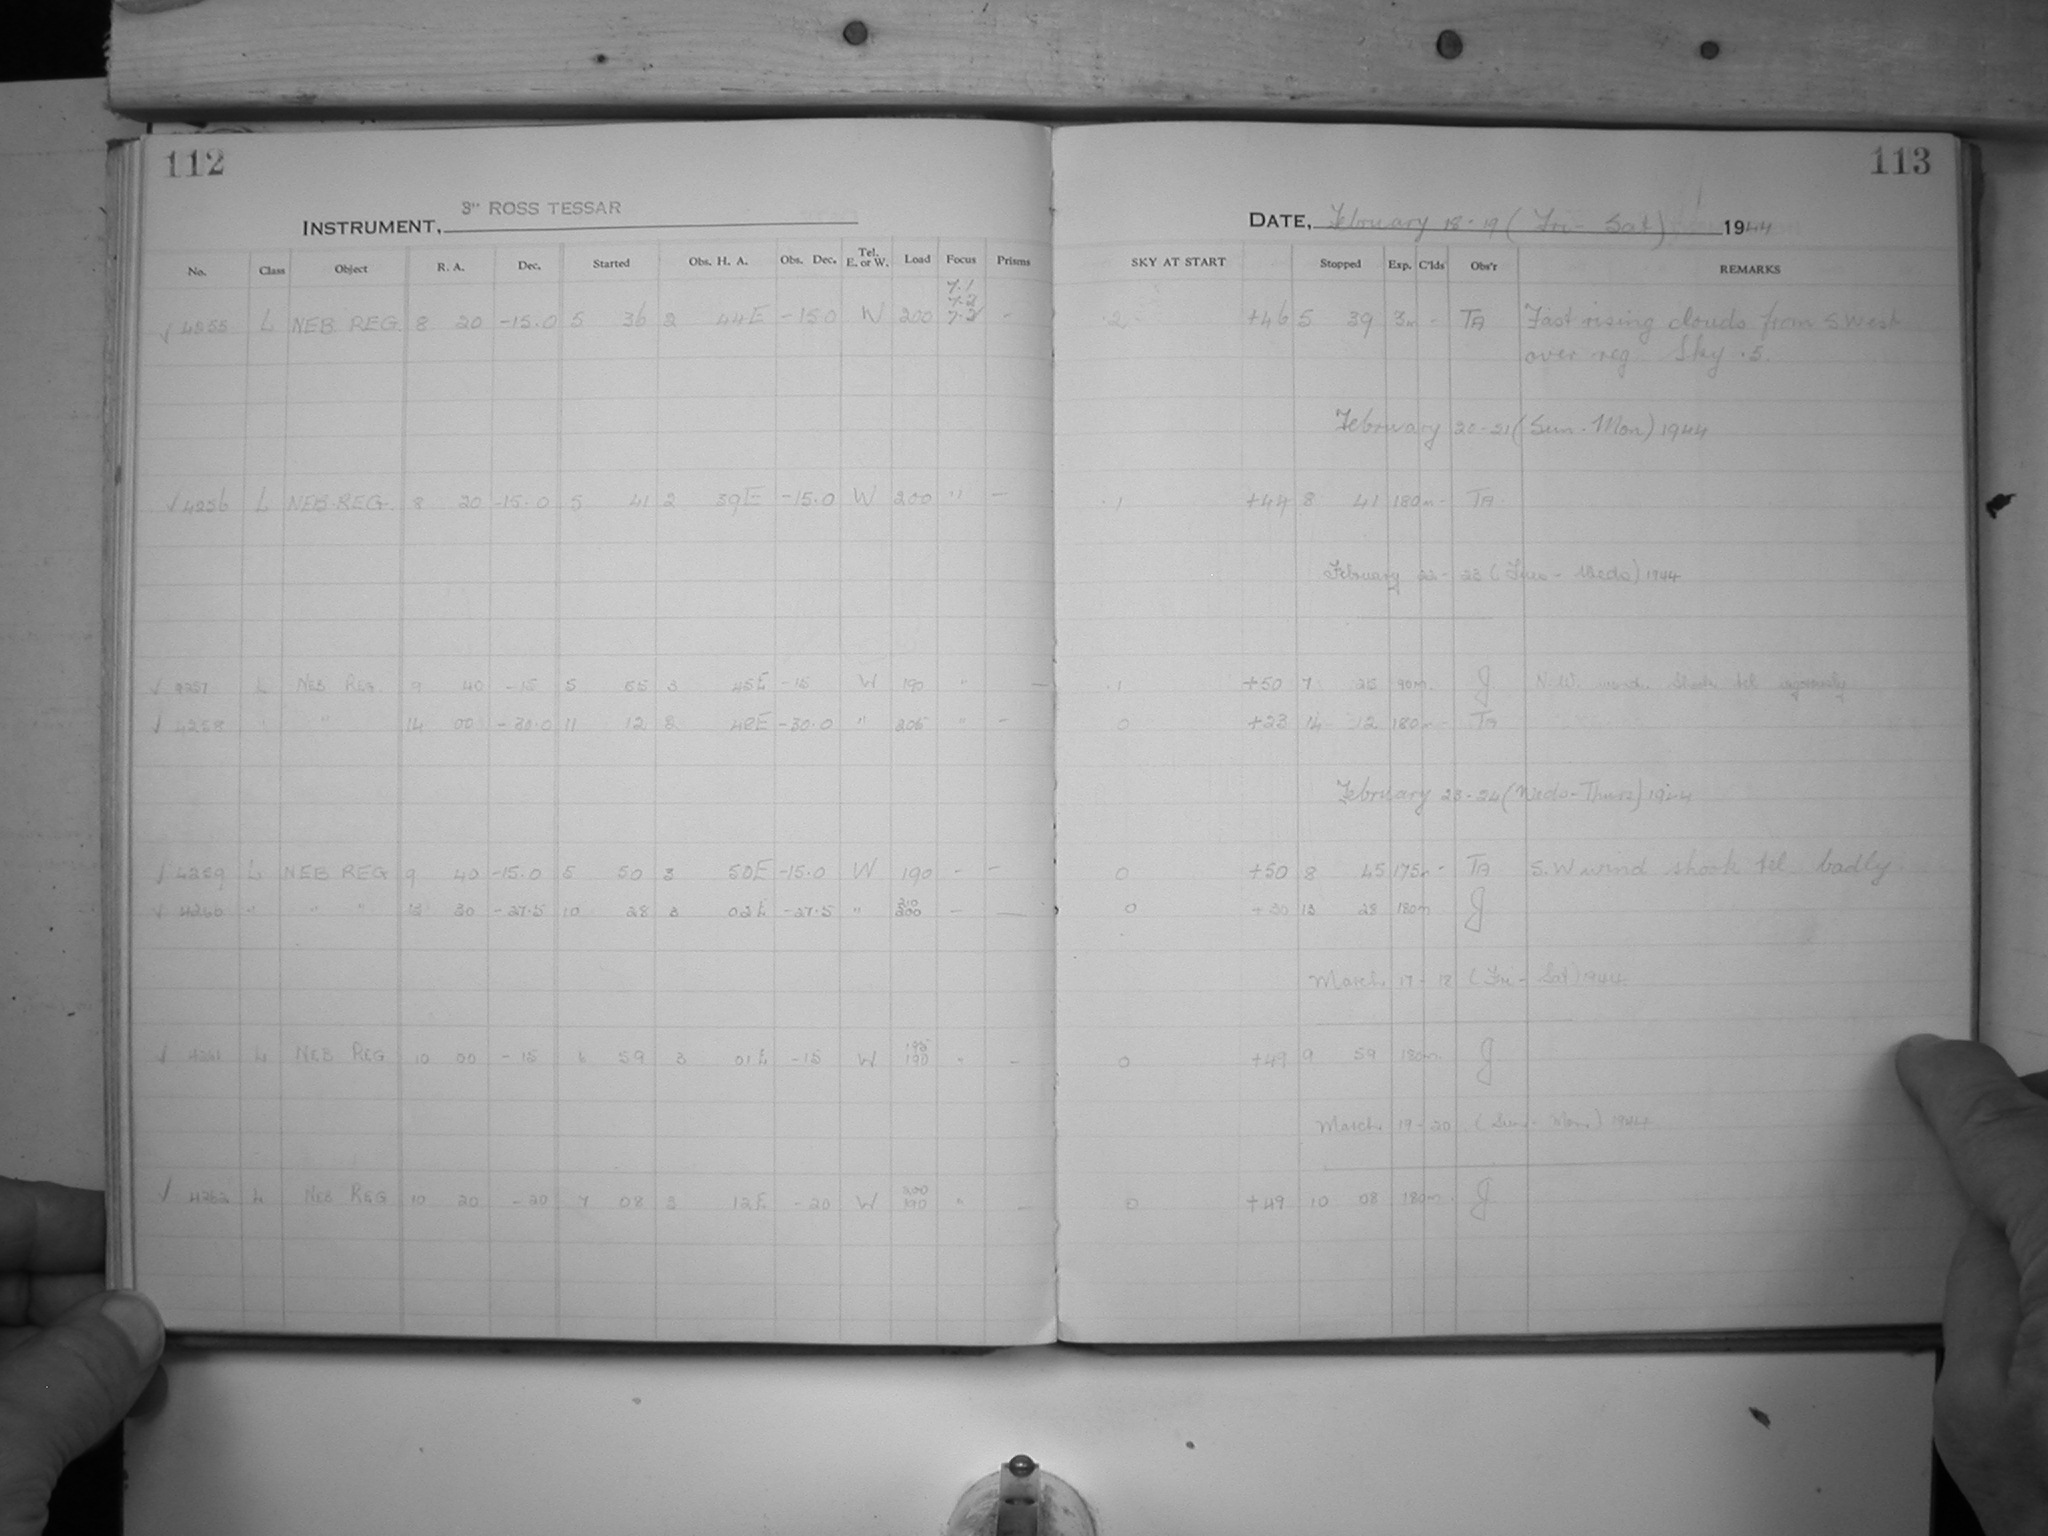 112
113
INSTRUMENT, 3" ROSS TESSAR
DATE, February 18-19 (Fri - Sat) 1944
No. Class Object R. A. Dec. Started Obs. H. A. Obs. Dec. Tel. E. or W. Load Focus Prisms SKY AT START Stopped Exp. C'lds Obs'r REMARKS
7.1
7.2
√ 4255 L NEB. REG. 8 20 -15.0 5 36 2 44E -15.0 W 200 7.2 - .2 +46 5 39 3m - TA Fast rising clouds from S.West
over reg. Sky .5.
February 20-21 (Sun-Mon) 1944
√ 4256 L NEB. REG. 8 20 -15.0 5 41 2 39E -15.0 W 200 " - .1 +44 8 41 180m - TA
February 22-23 (Tues - Weds) 1944
√ 4257 L NEB REG. 9 40 -15 5 55 3 45E -15 W 190 " - .1 +50 7 25 90m. J N.W. wind. Shook tel vigorously
√ 4258 " 14 00 -30.0 11 12 2 48E -30.0 " 205 " - 0 +23 14 12 180m - TA
February 23-24 (Weds-Thurs) 1944
√ 4259 L NEB REG 9 40 -15.0 5 50 3 50E -15.0 W 190 - - 0 +50 8 45 175m - TA S.W wind shook tel. badly
√ 4260 " " " 13 30 -27.5 10 28 3 02E -27.5 " 210 200 - - 0 +30 13 28 180m J
March 17-18 (Fri - Sat) 1944
√ 4261 L NEB REG 10 00 -15 6 59 3 01E -15 W 195 190 " - 0 +49 9 59 180m. J
March 19-20 (Sun - Mon) 1944
√ 4262 L NEB REG 10 20 -20 7 08 3 12E -20 W 200 190 " - 0 +49 10 08 180m. J